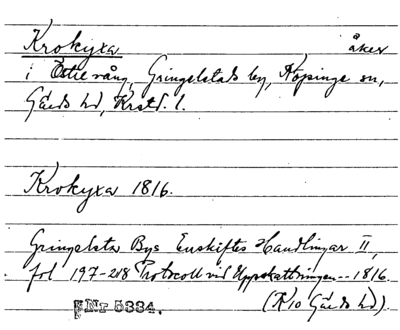 Krokyxa åker
i Östre vång, Gringelstads by, Köpinge sn,
Gärds hd, Krstd. l.
Krokyxa 1816.
Gringelsta Bys Enskiftes Handlingar II,
fol 197-218 Protocoll vid Uppskattningen -- 1816.
(K10 Gärds hd).
ENr 5334.